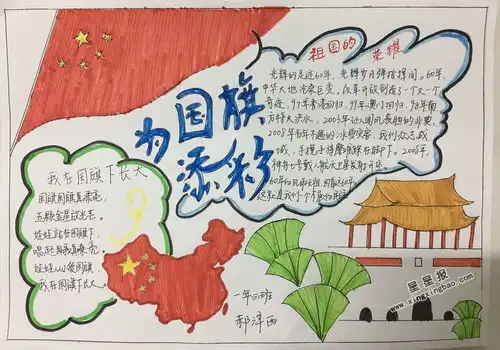 为国旗
添彩
祖国的荣耀
光辉的足迹60年，光辉岁月弹指挥间。60年，
中华大地沧桑巨变，改革开放创造了一个又一个
奇迹，97年香港回归，99年澳门回归，98年南
方特大洪水，2003年让人闻风胆怯的非典，
2008年初不遇的冰雪灾害，我们众志成
城，手挽手将磨难踩在脚下。2008年，
神舟七号载人航天卫星发射
我在国旗下长大
国旗国旗真漂亮，
五颗金星放光芒。
娃娃站在国旗下，
唱起国歌真嘹亮。
娃娃从小爱国旗，
我在国旗下长大。
一年四班
郝泽西
星星报
xingxingbao.com